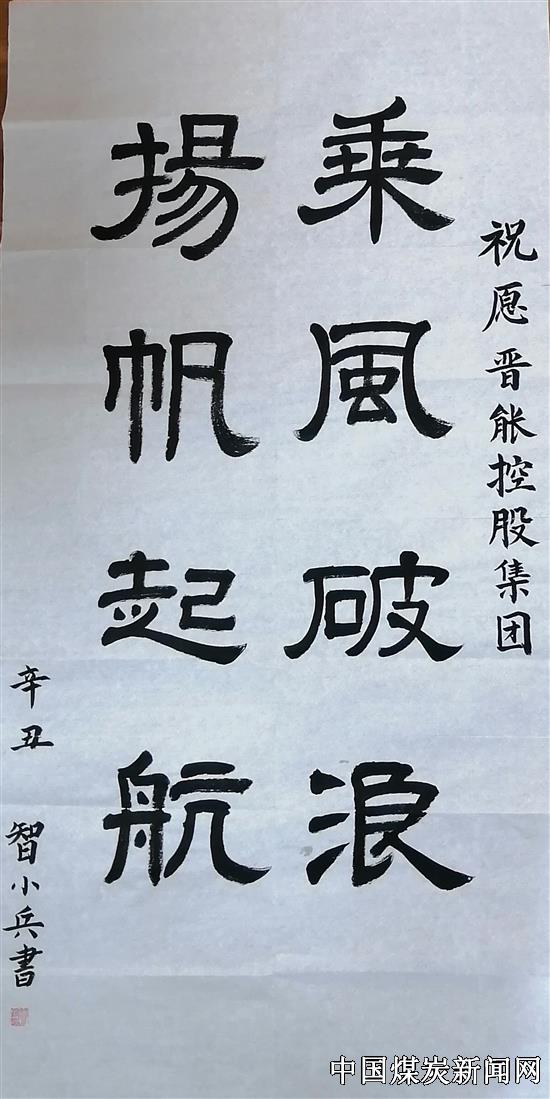 祝愿晋能控股集团
乗風破浪
揚帆起航
辛丑
智小兵書
中国煤炭新闻网